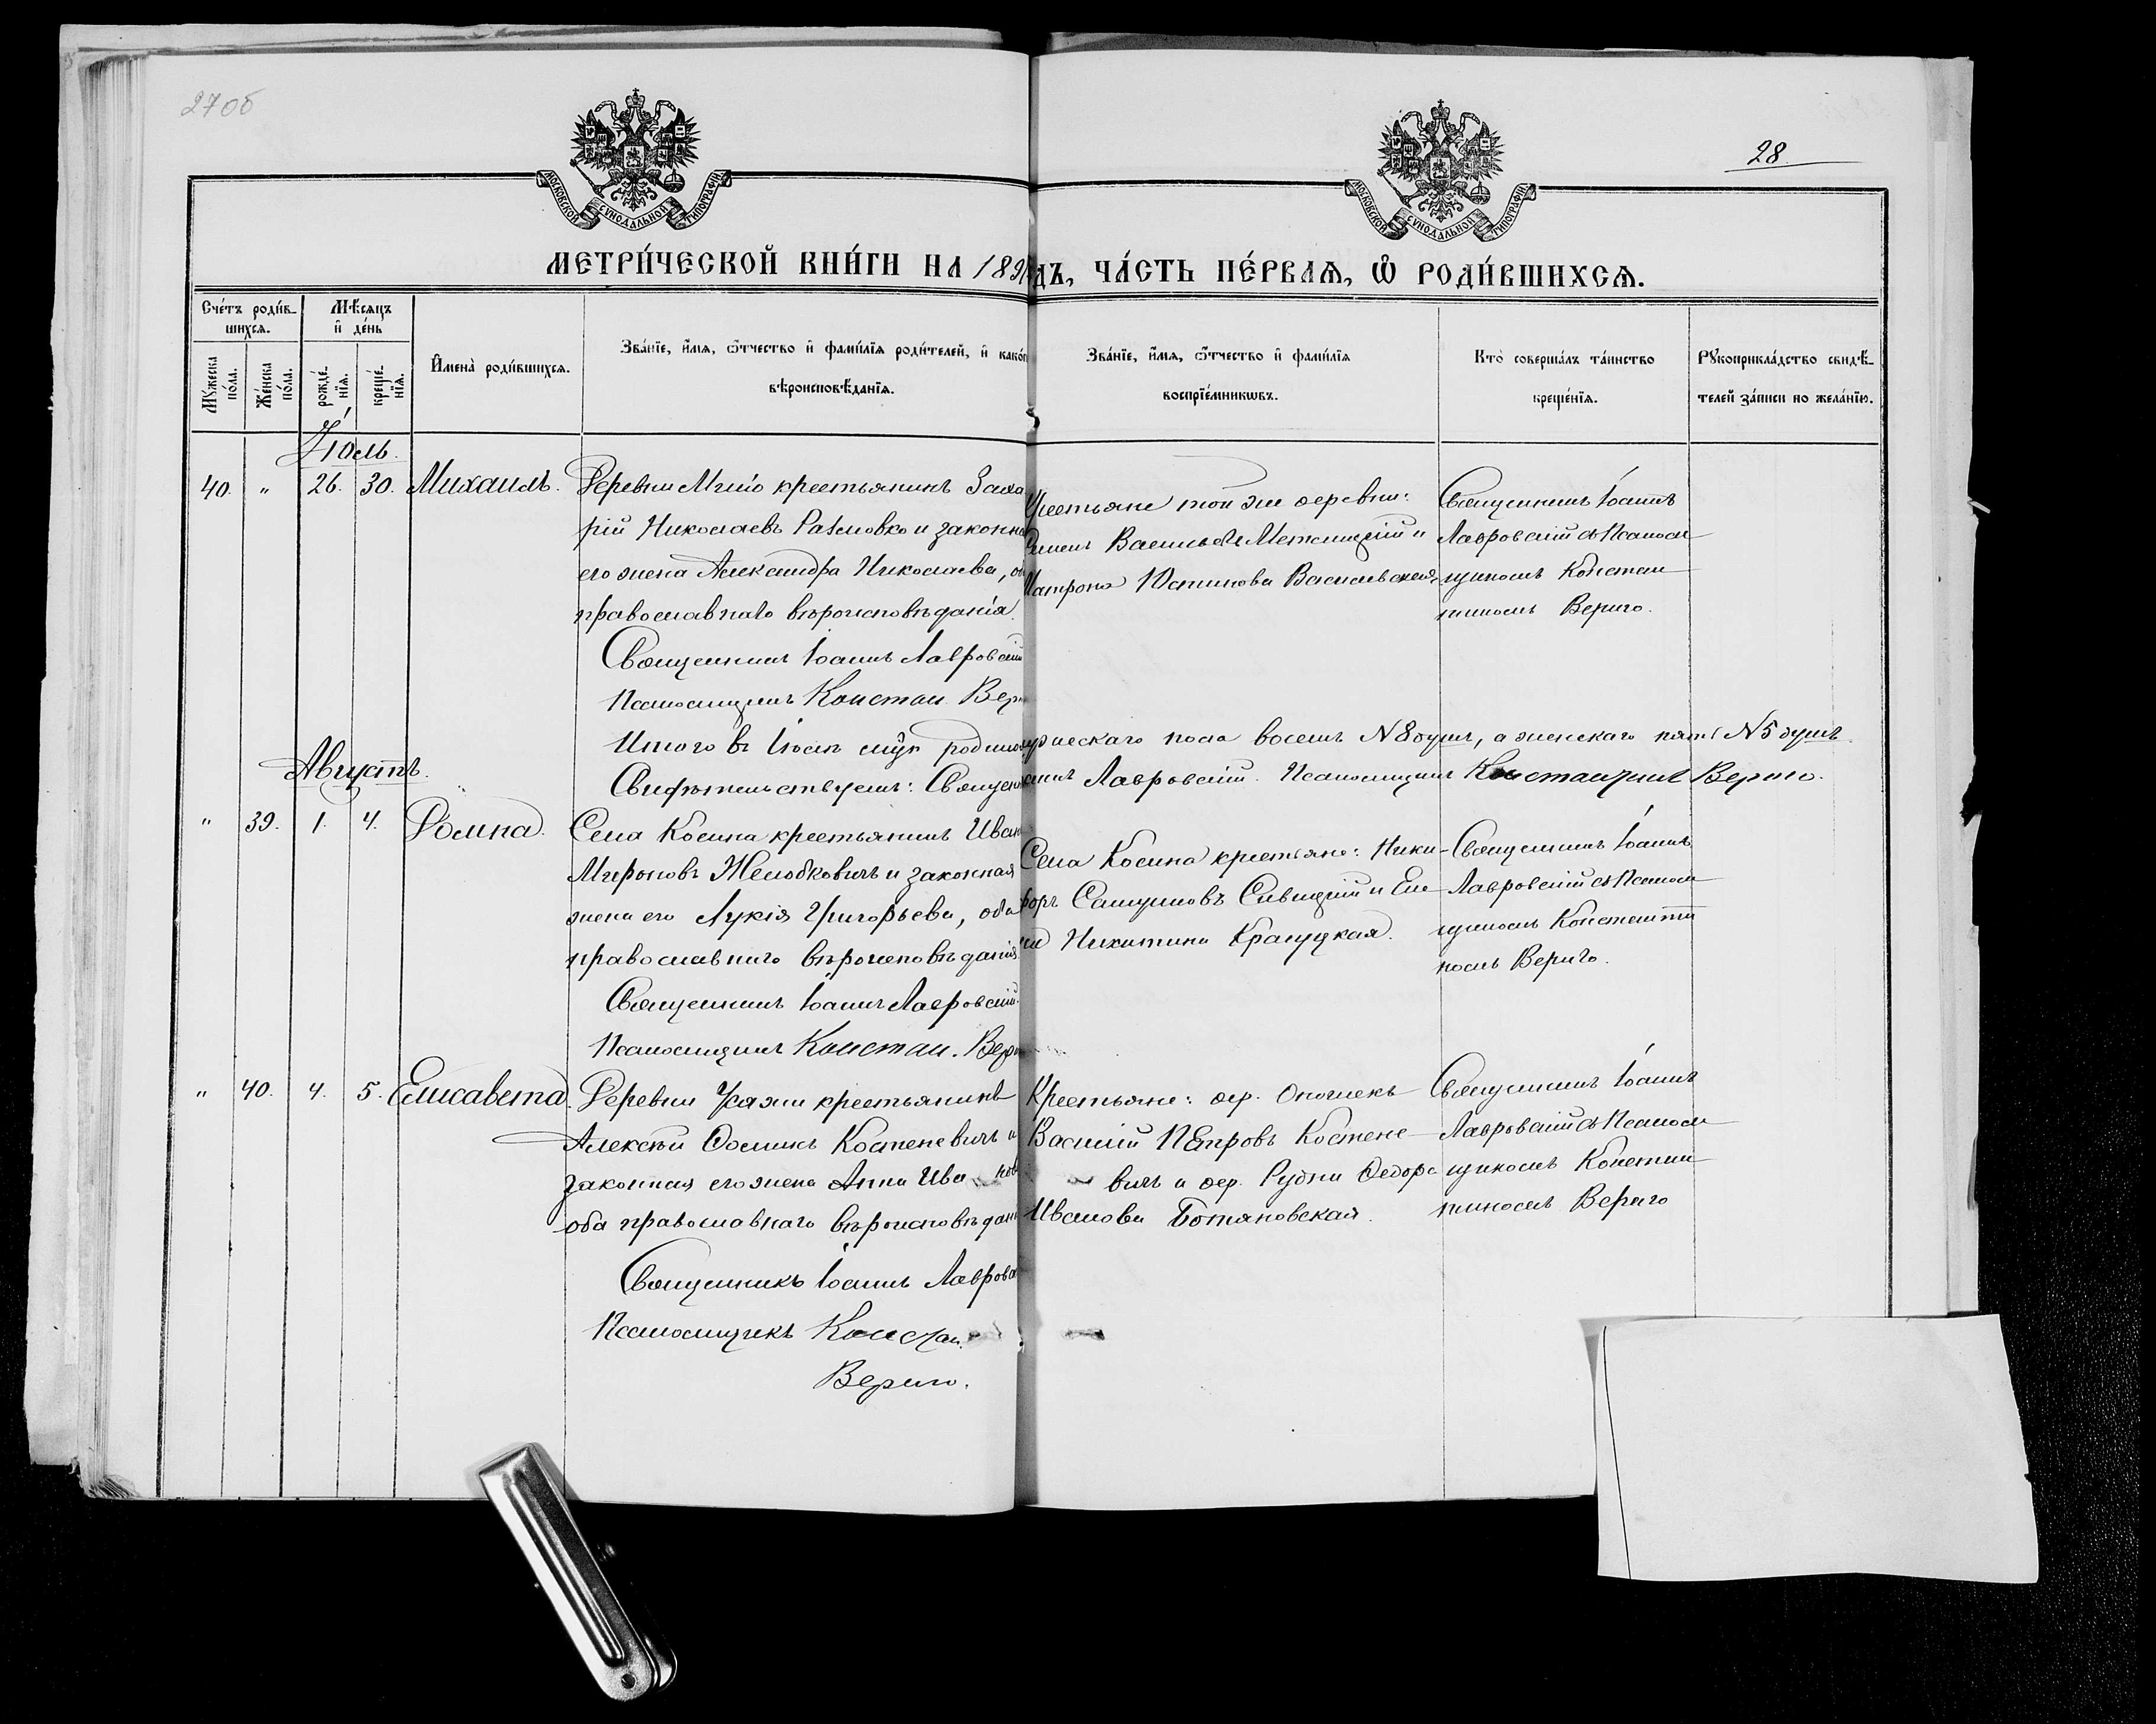 27об
28
МОСКОВСКОЙ СѴНОДАЛЬНОЙ ТИПОГРАФІИ
МОСКОВСКОЙ СѴНОДАЛЬНОЙ ТИПОГРАФІИ
МЕТРИ́ЧЕСКОЙ КНИ́ГИ НА 189 ДЪ, ЧА́СТЬ ПЕ́РВАѦ, Ѽ РОДИ́ВШИХСѦ.
Сче́тъ роди́в-
шихсѧ.
Мꙋ́жеска по́ла.
Же́нска по́ла.
Мѣ́сѧцъ
и҆ де́нь
рожде́-нїѧ.
креще́-нїѧ.
И҆мена̀ роди́вшихсѧ.
Зва́нїе, и҆́мѧ, ѻ҆́тчество и҆ фами́лїѧ роди́телей, и҆ како́г
вѣроисповѣ́данїѧ.
Зва́нїе, и҆́мѧ, ѻ҆́тчество и҆ фами́лїѧ
воспрїе́мникѡвъ.
Кто̀ соверша́лъ та́инство
креще́нїѧ.
Рꙋкоприкла́дство свидѣ́-
телей за́писи по жела́нїю.
Іюль.
40. " 26. 30. Михаилъ.
Деревни Мгію крестьянинъ Заха
рій Николаевъ и законна
его жена Александра Николаева, об
православнаго вѣроисповѣданія.
Священникъ Іоаннъ Лавровскій
Псаломщикъ Констан. Вер
Крестьяне той же деревни:
Васильевъ и
Матрона Устинова Василевская
Священникъ Іоаннъ
Лавровскій съ Псалом
щикомъ Констан
тиномъ Вериго.
Итого въ Іюлѣ мцѣ родило мужескаго пола восемь N8 душъ, а женскаго пять N5 душъ
Свидѣтельствуемъ: Священ аннъ Лавровскій. Псаломщикъ Константинъ Вериго.
Августъ.
" 39. 1. 4. Домна.
Села Косина крестьянинъ Иван
Мироновъ Желобковичъ и законная
жена его Лукія Григорьева, оба
православнаго вѣроисповѣданія
Священникъ Іоаннъ Лавровскій.
Псаломщикъ Констан. Вери
Села Косина крестьяне: Ники-
форъ Савицкій и Еле
на Никитина
Священникъ Іоаннъ
Лавровскій съ Псалом
щикомъ Константи
номъ Вериго.
" 40. 4. 5. Елисавета.
Деревни Усяжи крестьянинъ
Алексѣй Ѳоминъ Костеневичъ и
законная его жена Анна Ива нов
оба православнаго вѣроисповѣдан
Священникъ Іоаннъ Лавровс
Псаломщикъ Констан.
Вериго.
Крестьяне: дер. Опочекъ
Василій Петровъ Костене
вичъ и дер. Рудни Ѳедора
Иванова Ботяновская.
Священникъ Іоаннъ
Лавровскій съ Псалом
щикомъ Констан
тиномъ Вериго